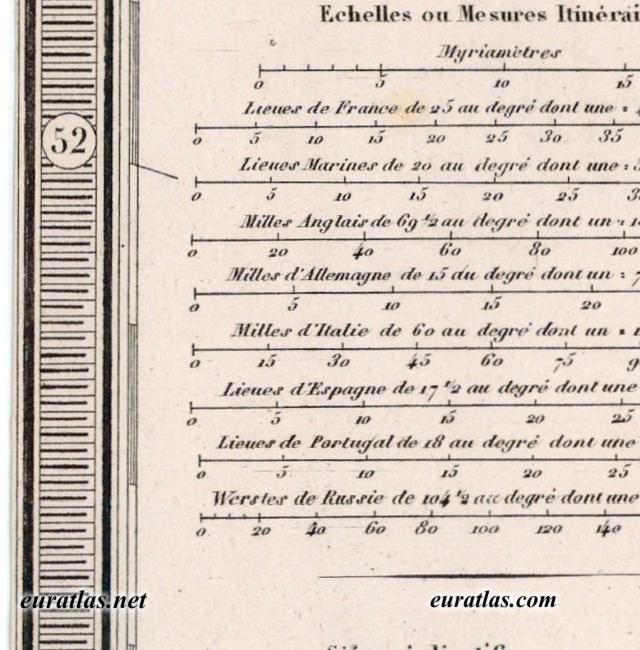 Echelles ou Mesures Itinérai
Myriamètres
0 5 10 15
Lieues de France de 25 au degré dont une = 4
0 5 10 15 20 25 30 35
52
Lieues Marines de 20 au degré dont une =
0 5 10 15 20 25
Milles Anglais de 69 ½ au degré dont un =
0 20 40 60 80 100
Milles d'Allemagne de 15 du degré dont un = 7
0 5 10 15 20
Milles d'Italie de 60 au degré dont un = 1
0 15 30 45 60 75 9
Lieues d'Espagne de 17 ½ au degré dont une
0 5 10 15 20 25
Lieues de Portugal de 18 au degré dont une
0 5 10 15 20 25
Werstes de Russie de 104 ½ au degré dont une
0 20 40 60 80 100 120 140
euratlas.net euratlas.com